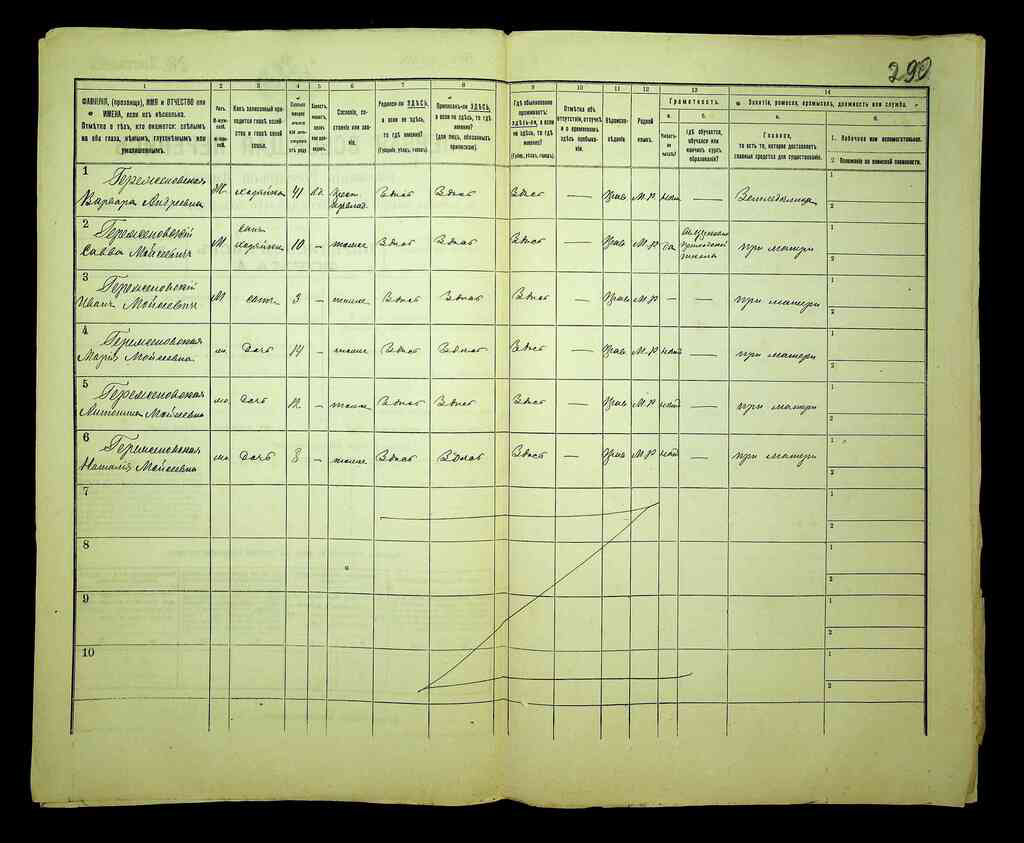 290
1 2 3 4 5 6 7 8 9 10 11 12 13 14
ФАМИЛІЯ, (прозвище), ИМЯ и ОТЧЕСТВО или
ИМЕНА, если ихъ нѣсколько.
Отмѣтка о тѣхъ, кто окажется: слѣпымъ
на оба глаза, нѣмымъ, глухонѣмымъ или
умалишеннымъ.
Полъ.
Какъ записанный приходится главѣ хозяйства и главѣ своей семьи.
Сословіе, состояніе или званіе.
Родился-ли ЗДѢСЬ,
а если не здѣсь,
то гдѣ
именно?
(Губернія, уѣздъ, городъ).
Приписанъ-ли ЗДѢСЬ,
а если не здѣсь, то гдѣ
именно?
(для лицъ, обязанныхъ
припискою).
Гдѣ обыкновенно
проживаетъ:
здѣсь-ли, а если
не здѣсь, то гдѣ
именно?
(Губер., уѣздъ, городъ).
Отмѣтка объ
отсутствіи, отлучкѣ
и о временномъ
здѣсь пребываніи.
Вѣроисповѣданіе
Родной
языкъ.
Грамотность.
а.
Умѣетъ-ли
читать?
б.
гдѣ обучается,
обучался или
кончилъ курсъ
образованія?
Занятіе, ремесло, промыселъ, должность или служба.
а.
Главное,
то есть то, которое доставляетъ
главныя средства для существованія.
б.
1. Побочное или вспомогательное.
2 Положеніе по воинской повинности.
1
Варвара Андреевна
Ж хозяйка 41 вд. Здѣсь Здѣсь Здѣсь — Прав М.Р нѣтъ —
1
2
2
Савва Мойсеевич
М сынъ
хозяйки 10 — тоже Здѣсь Здѣсь Здѣсь — Прав М.Р да
школа
при матери
1
2
3
Иванъ Мойсеевич
М сынъ 3 — тоже Здѣсь Здѣсь Здѣсь — Прав М.Р — — при матери
1
2
4
Марія Мойсеевна
дочь 14 — тоже Здѣсь Здѣсь Здѣсь — Прав М.Р нѣтъ — при матери
1
2
5
Антонина Мойсеевна
дочь 12 — тоже Здѣсь Здѣсь Здѣсь — Прав М.Р нѣтъ — при матери
1
2
6
Наталія Мойсеевна
дочь 8 — тоже Здѣсь Здѣсь Здѣсь — Прав М.Р нѣтъ — при матери
1
2
7
1
2
8
1
2
9
1
2
10
1
2